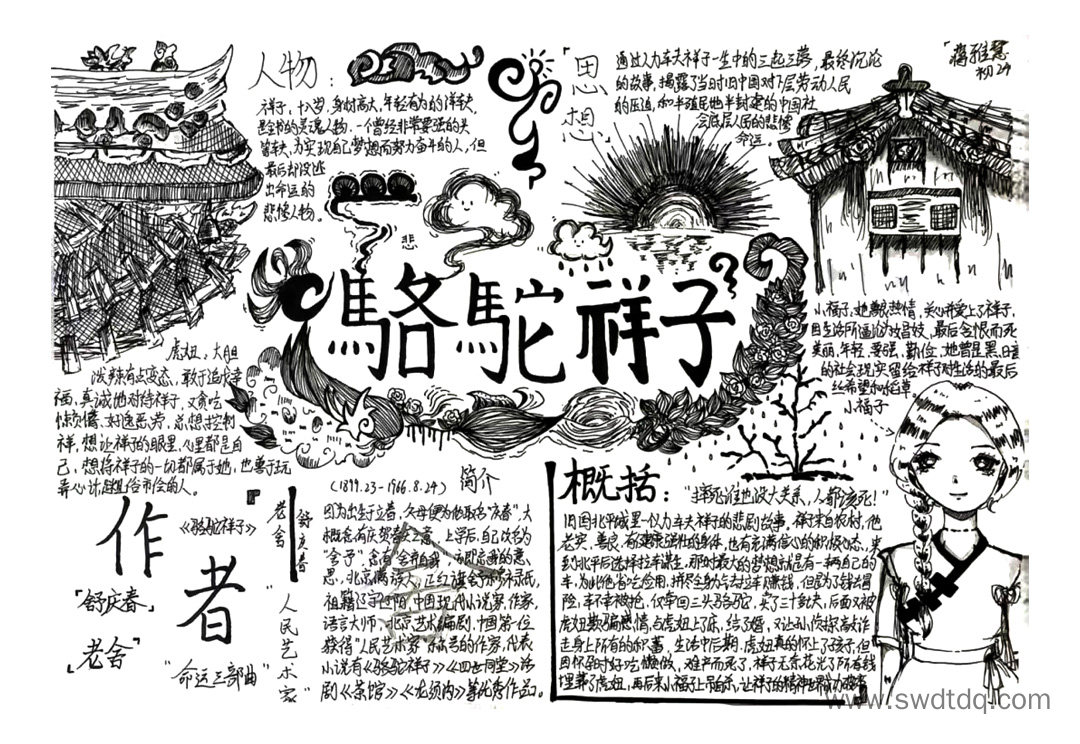 人物：
祥子，十八岁，身材高大，年轻有力的洋车夫
是全书的灵魂人物，一个曾经非常要强的头
等车夫，为实现自己梦想而努力奋斗的人，但
最后却没逃
出命运的
悲惨人物。
「思想」
通过人力车夫祥子一生中的三起三落，最终沉沦
的故事，揭露了当时旧中国对下层劳动人民
的压迫，和半殖民地半封建的中国社
会底层人民的悲惨
命运。
蒋雅慧
初24
悲
駱駝祥子
虎妞：大胆
泼辣有点变态，敢于追求幸
福，真诚地对待祥子，又贪吃
懒惰，好逸恶劳，总想控制
祥，想让祥子的眼里，心里都是自
己，想将祥子的一切都属于她，也善于玩
弄心计
俗市侩的人。
小福子，她善良热情，关心并爱上了祥子，
因生活所逼沦为娼妓，最后含恨而死
美丽，年轻，要强，勤俭，她曾是黑暗
的社会现实留给祥子对生活的最后
丝希望和
稻草
小福子
作者
《骆驼祥子》
老舍
舒庆春
「舒庆春」
「老舍」
"命运三部曲"
"人民艺术家"
(1899.23-1966.8.24) 简介
因为出生于立春，父母便为他取名"庆春"，大
概含有庆贺春天之意，上学后，自己改名为
"舍予"，含有"舍弃自我"，亦即"忘我"的意
思，北京满族人，正红旗
祖籍辽宁辽阳，中国现代小说家，作家，
语言大师，北京人艺编剧，中国第一位
获得"人民艺术家"称号的作家，代表
小说有《骆驼祥子》《四世同堂》话
剧《茶馆》《龙须沟》等优秀作品。
舍
概括：
"摔死谁也没大关系，人都该死！"
旧国北平城里一
人力车夫祥子的悲剧故事，祥子来自农村，他
老实，善良，有健康强壮的身体，也有充满信心的积极心态，来
到北平后选择拉车谋生，那时最大的梦想就是有一辆自己的
车，为此他省吃俭用，拼尽全力去拉车赚钱，但是为了钱冒
险，车不幸被抢，仅牵回三头骆驼，买了三十多块，后面又被
虎妞欺骗感情，与虎妞上了床，结了婚，又让孙侦探敲诈
走身上所有的积蓄，生活中后期，虎妞真的怀上了孩子，但
因怀孕时好吃懒做，难产而死了，祥子无奈花光了所有钱
埋葬了虎妞，再后来小福子上吊自杀，让祥子的精神世界
www.swdtdq.com